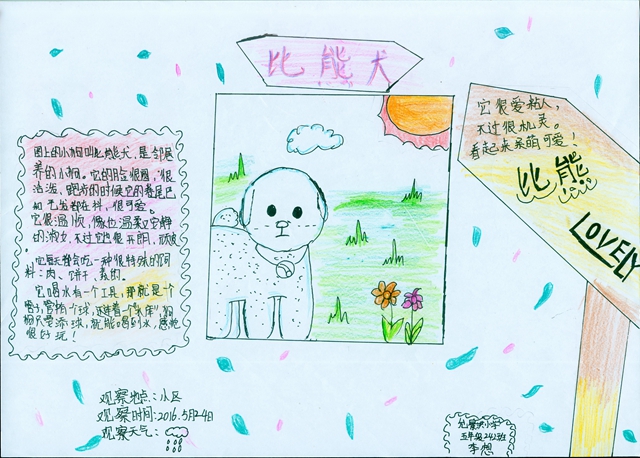 比熊犬
它很爱黏人，
不过很机灵。
看起来呆萌可爱！
比熊
LOVELY
图上的小狗叫比熊犬，是邻居
养的小狗。它的脸很圆，很
活泼，跑步的时候它的卷尾巴
和毛发都在抖，很可爱。
它很温顺，像位温柔又安静
的淑女，不过它也很开朗，顽皮。
它每天都会吃一种很特殊的饲
料：肉、饼干、
它喝水有一个工具，那就是一个
管子，管有个球，还连着一个"水库"，狗
狗只要舔球，就能喝到水，感觉
很好玩！
观察地点：小区
观察时间：2016.5月24日
观察天气：
小学
五年级242班
李想